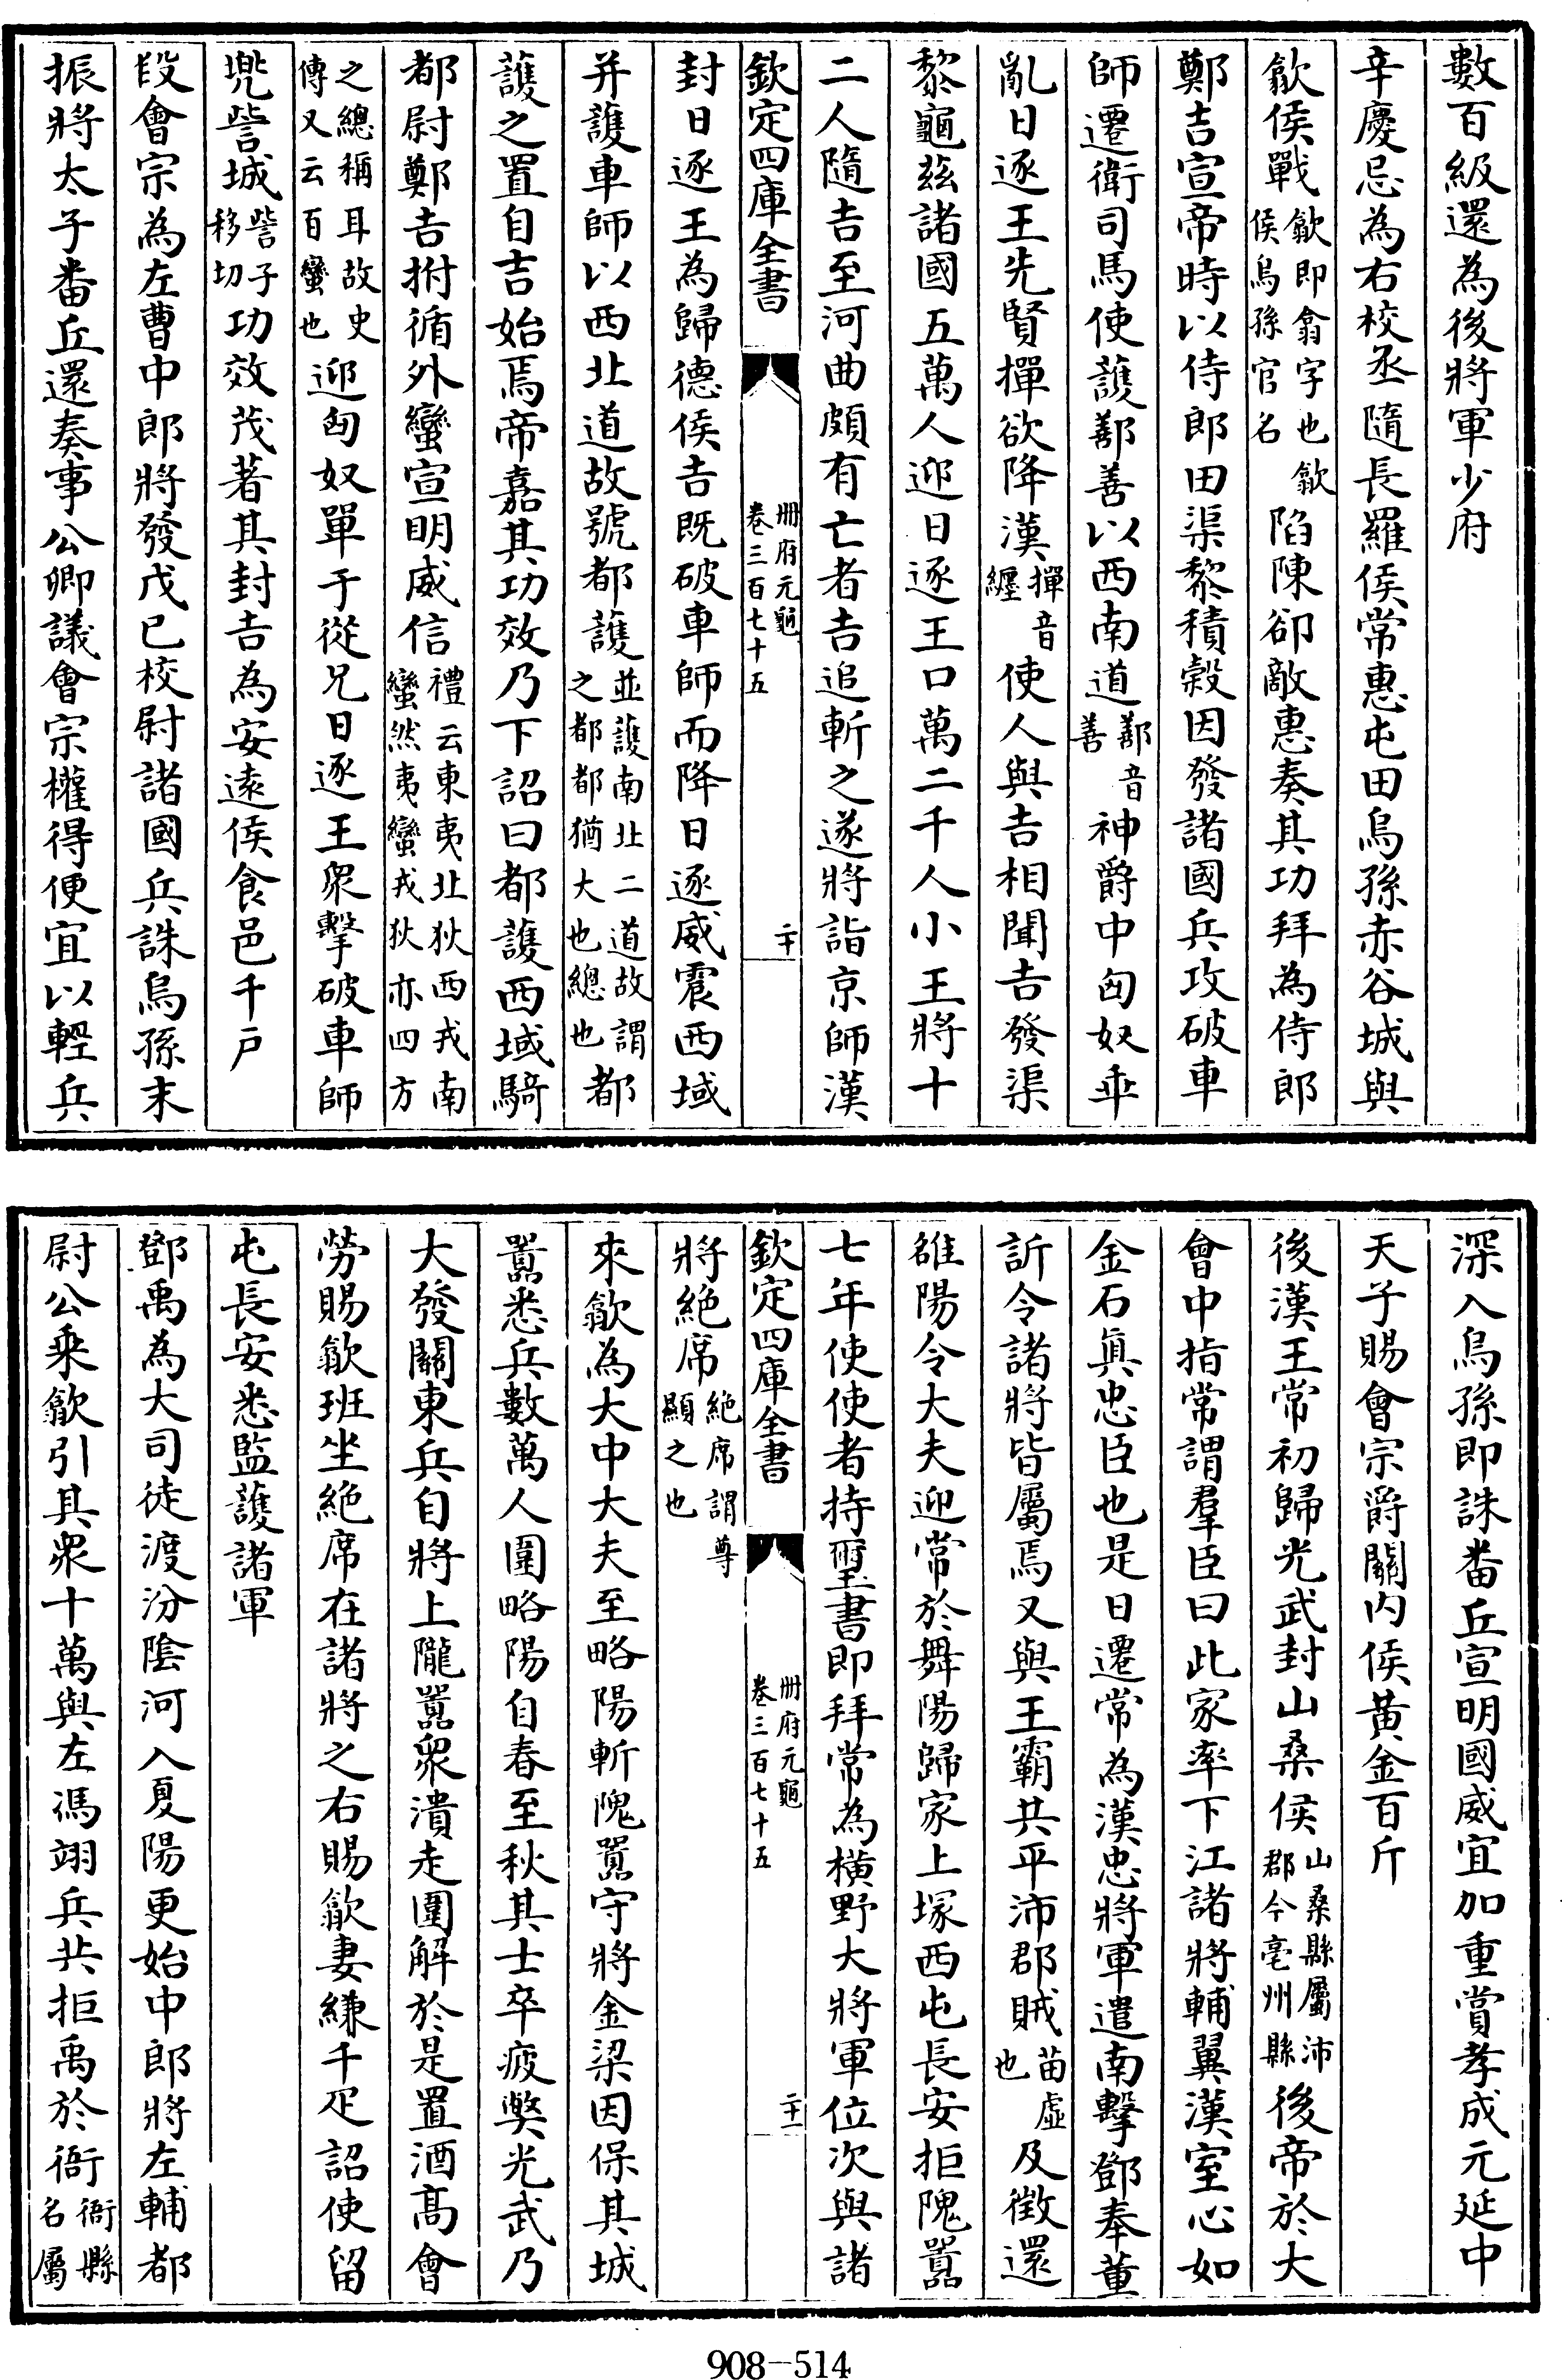 數百級還為後將軍少府
辛慶忌為右校丞隨長羅侯常惠屯田烏孫赤谷城與
歙侯戰歙即翕字也歙侯烏孫官名陷陳卻敵惠奏其功拜為侍郎
鄭吉宣帝時以侍郎田渠黎積穀因發諸國兵攻破車
師遷衛司馬使護鄯善以西南道鄯音善神爵中匈奴乖
亂日逐王先賢撣欲降漢撣音纏使人與吉相聞吉發渠
黎龜茲諸國五萬人迎日逐王口萬二千人小王將十
二人隨吉至河曲頗有亡者吉追斬之遂將詣京師漢
欽定四庫全書 冊府元龜卷三百七十五 二十
封日逐王為歸德侯吉既破車師而降日逐威震西域
并護車師以西北道故號都護並護南北二道故謂之都都猶大也總也都
護之置自吉始焉帝嘉其功效乃下詔曰都護西域騎
都尉鄭吉拊循外蠻宣明威信禮云東夷北狄西戎南蠻然夷蠻戎狄亦四方
之總稱耳故史傳又云百蠻也迎匈奴單于從兄日逐王眾擊破車師
兜訾城訾子移切功效茂著其封吉為安遠侯食邑千戶
段會宗為左曹中郎將發戊已校尉諸國兵誅烏孫末
振將太子番丘還奏事公卿議會宗權得便宜以輕兵
深入烏孫即誅番丘宣明國威宜加重賞孝成元延中
天子賜會宗爵關內侯黃金百斤
後漢王常初歸光武封山桑侯山桑縣屬沛郡今亳州縣後帝於大
會中指常謂羣臣曰此家率下江諸將輔翼漢室心如
金石真忠臣也是日遷常為漢忠將軍遣南擊鄧奉董
訢令諸將皆屬焉又與王霸共平沛郡賊苗虛也及徵還
雒陽令大夫迎常於舞陽歸家上塚西屯長安拒隗囂
七年使使者持璽書即拜常為橫野大將軍位次與諸
欽定四庫全書 冊府元龜卷三百七十五 二十一
將絕席絕席謂尊顯之也
來歙為大中大夫至略陽斬隗囂守將金梁因保其城
囂悉兵數萬人圍略陽自春至秋其士卒疲獘光武乃
大發關東兵自將上隴囂眾潰走圍解於是置酒高會
勞賜歙班坐絕席在諸將之右賜歙妻縑千疋詔使留
屯長安悉監護諸軍
鄧禹為大司徒渡汾陰河入夏陽更始中郎將左輔都
尉公乘歙引其眾十萬與左馮翊兵共拒禹於衙衙縣名屬
908-514